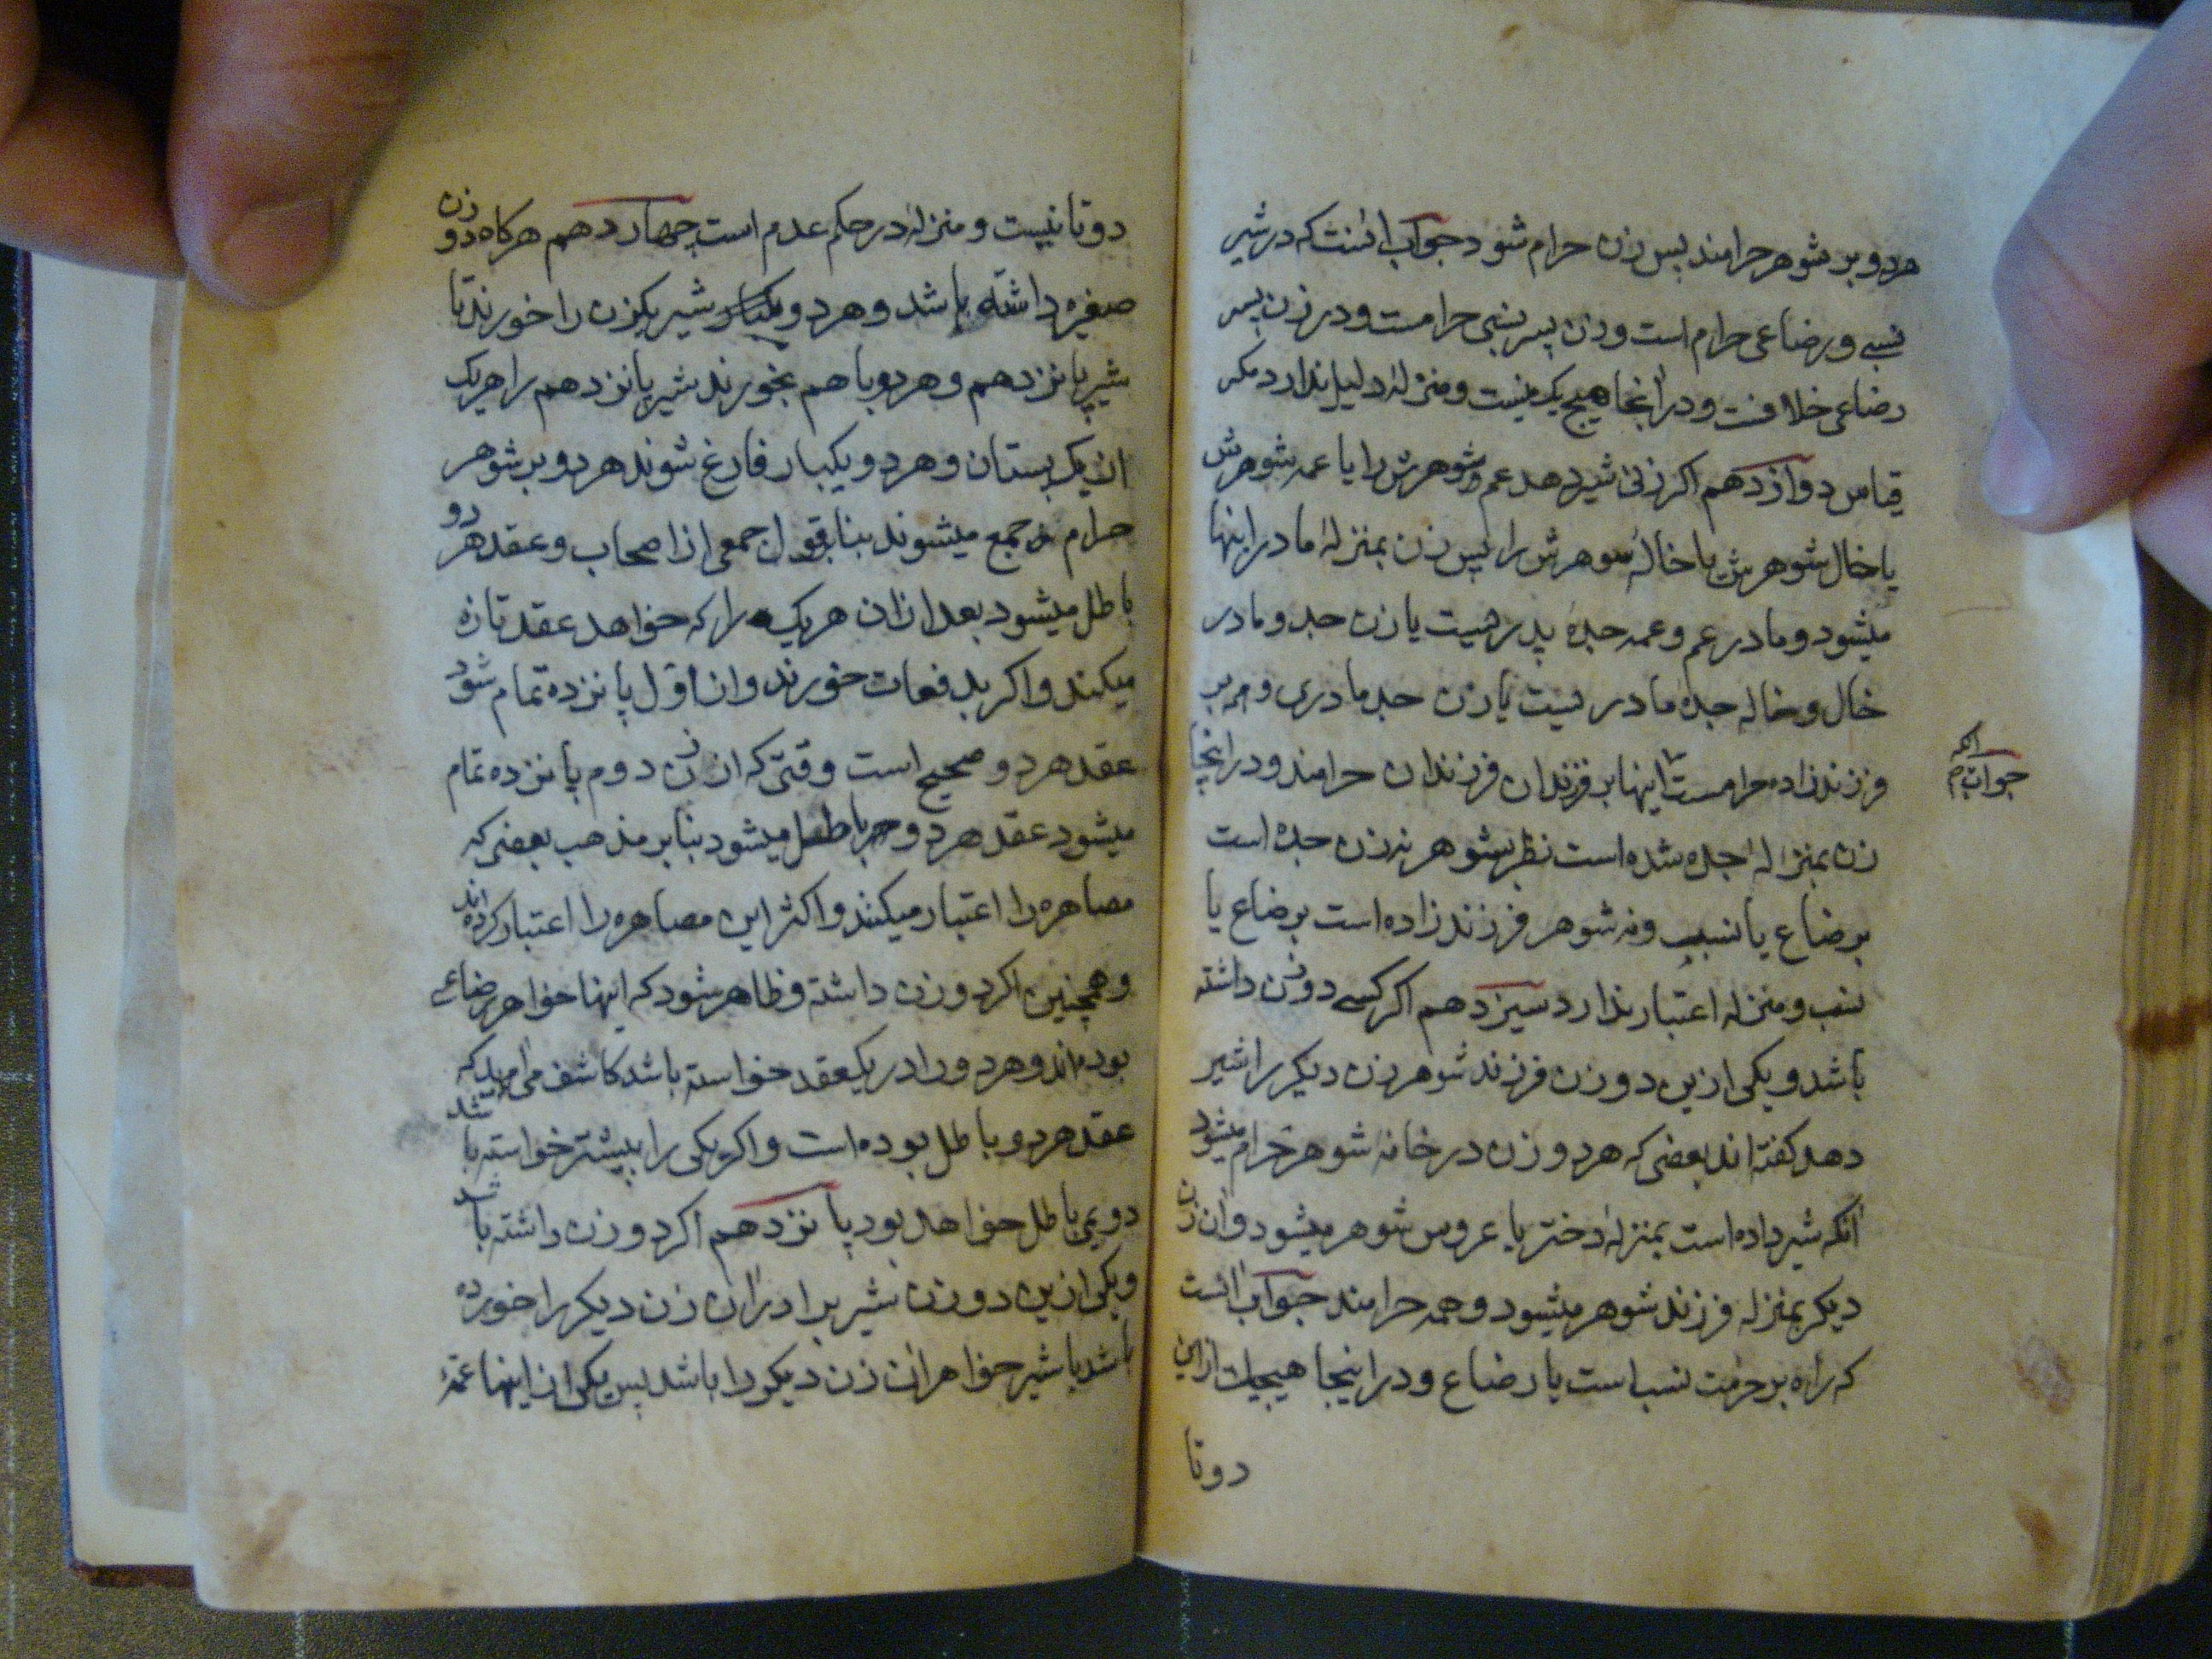 هردو بر شوهر حرامند پس زن حرام شود جواب انست که در شیر
نسبی و رضاعی حرام است وزن پسر نسبی حرامست و در زن پسر
رضاعی خلافست و در اینجا هیچ یک نیست و منزله دلیل ندارد مکر
قیاس دوازدهم اکر زنی شیر دهد عم شوهرش را یا عمه شوهرش
یا خال شوهرش یا خاله شوهرش را پس زن بمنزله مادر اینها
میشود و مادر عم و عمه جده پدریست یا زن جد و مادر
خال و خاله جده مادریست یا زن جد مادری و بر
فرزند زاده حرامست اینها بر فرزندان فرزندان حرامند و در اینجا
جواب انکه
زن بمنزله جده شده است نظر بشوهر نه زن جده است
برضاع یا نسب ونه شوهر فرزند زاده است برضاع یا
نسب و منزله اعتبار ندارد سیزدهم اکر کسی دو زن داشته
باشد و یکی ازین دو زن فرزند شوهر زن دیکر را شیر
دهد کفته اند بعضی که هردو زن در خانه شوهر حرام میشود
انکه شیر داده است بمنزله دختر یا عروس شوهر میشود وان زن
دیکر بمنزله فرزند شوهر میشود و همه حرامند جواب انست
که راه بر حرمت نسب است یا رضاع و در اینجا هیچیک ازاین
دوتا
دوتا نیست و منزله در حکم عدم است چهاردهم هرکاه دو زن
صغیره داشته باشد و هردو شیر یکزن را خورند تا
شیر پانزدهم و هردو با هم بخورند شیر پانزدهم را هریک
از یک پستان و هردو یکبار فارغ شوند هردو بر شوهر
حرام جمع میشوند بنا بقول جمعی از اصحاب و عقد هر دو
باطل میشود بعد ازان هریک را که خواهد عقد تازه
میکند و اکر بدفعات خورند وان اول پانزده تمام شود
عقد هردو صحیح است وقتی که ان زن دوم پانزده تمام
میشود عقد هردو باطل میشود بنا بر مذهب بعضی که
مصاهره را اعتبار میکنند و اکثر این مصاهره را اعتبار کرده اند
و همچنین اکر دو زن داشته و ظاهر شود که اینها خواهر رضاعی
بوده اند و هردو را در یک عقد خواسته باشد کاشف می امد که
عقد هردو باطل بوده است و اکر یکی را پیشتر خواسته باشد
دویمی باطل خواهد بود پانزدهم اکر دو زن داشته باشد
و یکی ازین دو زن شیر برادر ان زن دیکر را خورده
باشد یا شیر خواهر ان زن دیکر را باشد پس یکی از اینها عمه